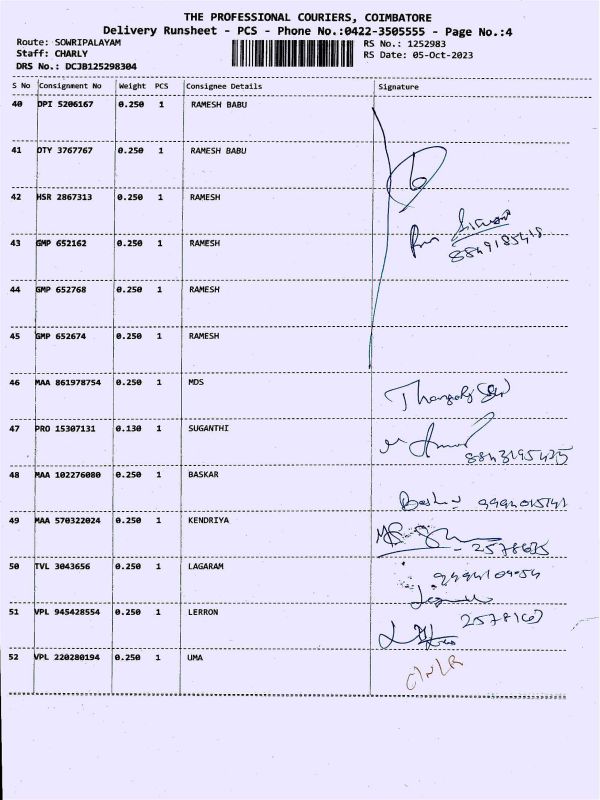 THE PROFESSIONAL COURIERS, COIMBATORE
Delivery Runsheet - PCS - Phone No.:0422-3505555 - Page No.:4
Route: SOWRIPALAYAM RS No.: 1252983
Staff: CHARLY RS Date: 05-Oct-2023
DRS No.: DCJB125298304
S No Consignment No Weight PCS Consignee Details Signature
40 DPI 5206167 0.250 1 RAMESH BABU
41 DTY 3767767 0.250 1 RAMESH BABU
42 HSR 2867313 0.250 1 RAMESH
43 GMP 652162 0.250 1 RAMESH
44 GMP 652768 0.250 1 RAMESH
45 GMP 652674 0.250 1 RAMESH
46 MAA 861978754 0.250 1 MDS
47 PRO 15307131 0.130 1 SUGANTHI
48 MAA 102276080 0.250 1 BASKAR
49 MAA 570322024 0.250 1 KENDRIYA
50 TVL 3043656 0.250 1 LAGARAM
51 VPL 945428554 0.250 1 LERRON
52 VPL 220280194 0.250 1 UMA